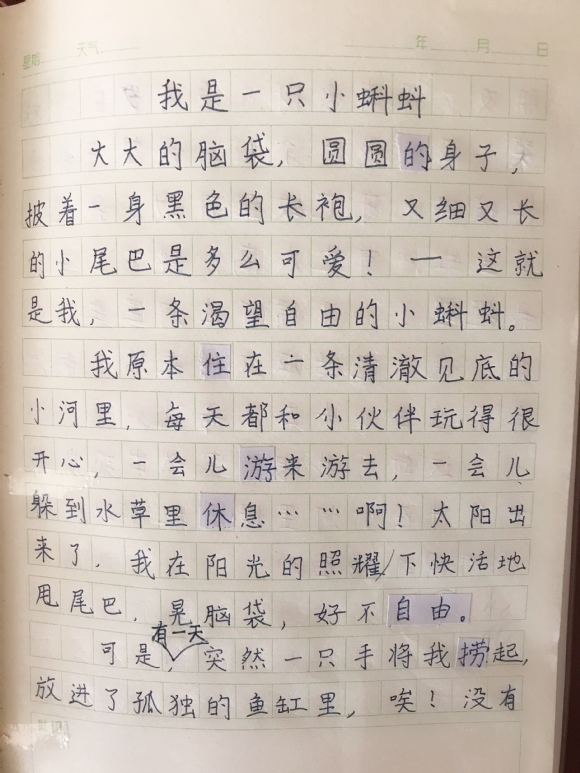 星期 天气 年 月 日
我是一只小蝌蚪
大大的脑袋，圆圆的身子，
披着一身黑色的长袍，又细又长
的小尾巴是多么可爱！—这就
是我，一条渴望自由的小蝌蚪。
我原本住在一条清澈见底的
小河里，每天都和小伙伴玩得很
开心，一会儿游来游去，一会儿
躲到水草里休息……啊！太阳出
来了，我在阳光的照耀下快活地
甩尾巴，晃脑袋，好不自由。
可是，有一天突然一只手将我捞起，
放进了孤独的鱼缸里，唉！没有